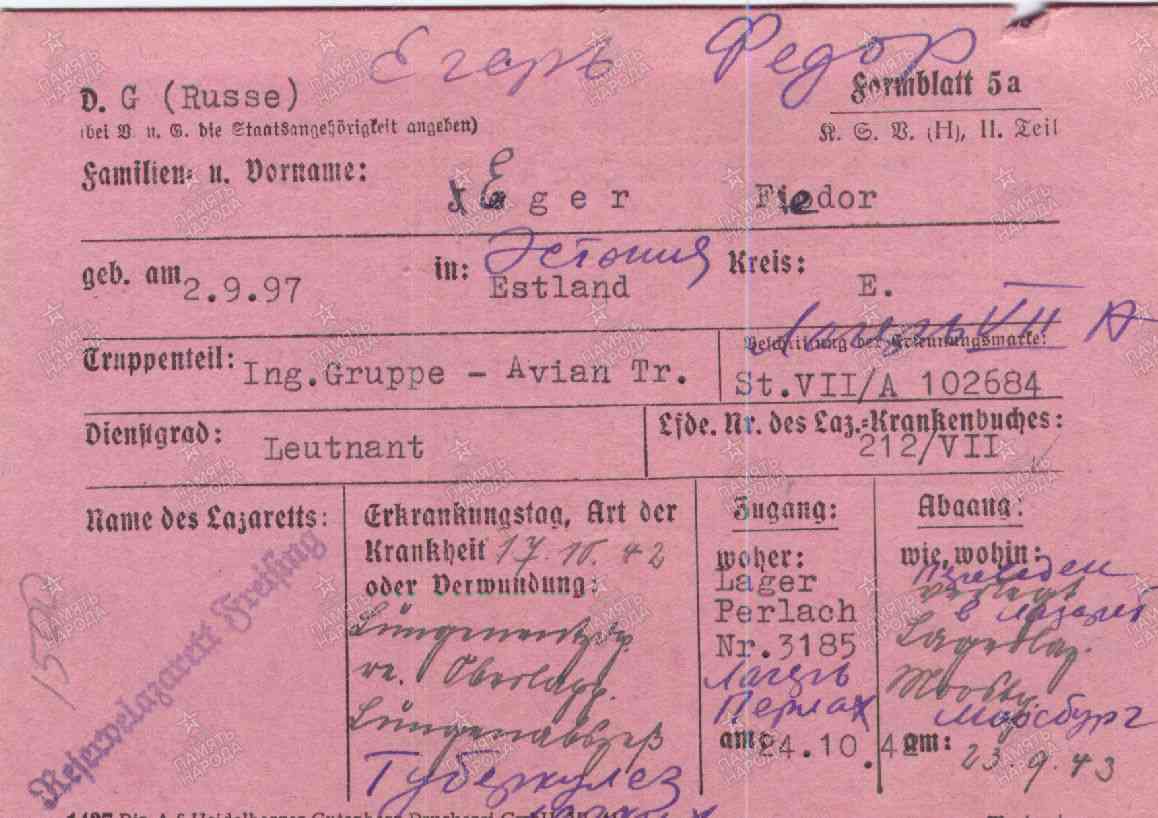 Егарь Федор
D. G (Russe)
(bei V. u. G. die Staatsangehörigkeit angeben)
Formblatt 5a
K. S. V. (H), II. Teil
Familien- u. Vorname:
Eger Fiedor
geb. am 2.9.97 in: Estland Kreis: E.
Эстония
Лагерь VII А
Truppenteil: Ing.Gruppe - Avian Tr.
Beschriftung der Erkennungsmarke:
St.VII/A 102684
Dienstgrad: Leutnant
Lfde. Nr. des Laz.-Krankenbuches:
212/VII
Name des Lazaretts:
Reservelazarett Freising
Erkrankungstag, Art der
Krankheit 17.10.42
oder Verwundung:
re. Oberlapp.
Lungenabszeß
Туберкулез
Zugang:
woher:
Lager
Perlach
Nr.3185
Лагерь
Перлах
am 24.10.42
Abgang:
wie, wohin:
verlegt
в лазарет
Lagerlaz.
Моосбург
am: 23.9.43
ПАМЯТЬ НАРОДА